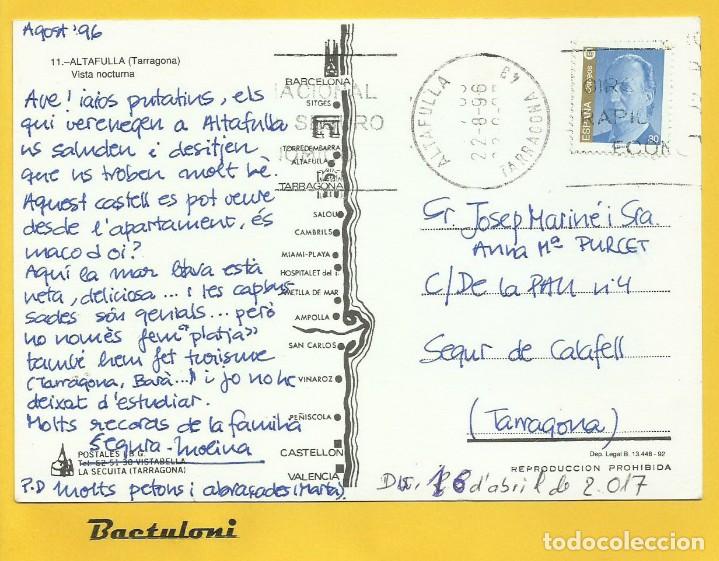 Agost '96
11.–ALTAFULLA (Tarragona)
Vista nocturna
Ave! iaios putatius, els
qui verenegen a Altafulla
us saluden i desitjen
que us troben molt bé.
Aquest castell es pot veure
desde l'apartament, és
maco d oi?
Aquí la mar blava està
neta, deliciosa... i les capbus-
sades són genials... però
no només fem "platja"
també hem fet turisme
(Tarragona, Barà...) i jo no he
deixat d'estudiar.
Molts records de la família
Segura-Molina
POSTALES I.B.G.
Tel. 62 51 30 VISTABELLA
LA SECUITA (TARRAGONA)
P.D Molts petons i abraçades (Marta).
BARCELONA
SITGES
TORREDEMBARRA
ALTAFULLA
TARRAGONA
SALOU
CAMBRILS
MIAMI-PLAYA
HOSPITALET del I.
AMETLLA DE MAR
AMPOLLA
SAN CARLOS
VINAROZ
PEÑISCOLA
CASTELLON
VALENCIA
NACIONAL
ALTAFULLA
22-8-96
TARRAGONA
ESPAÑA
correos
GIRO
RAPID
ECONO
Sr. Josep Mariné i Sra.
Anna Mª PURCET
C/De la PAU nº4
Segur de Calafell
(Tarragona)
Dep. Legal B. 13.448 - 92
REPRODUCCION PROHIBIDA
16 d'abril de 2.017
Bactuloni
todocoleccion